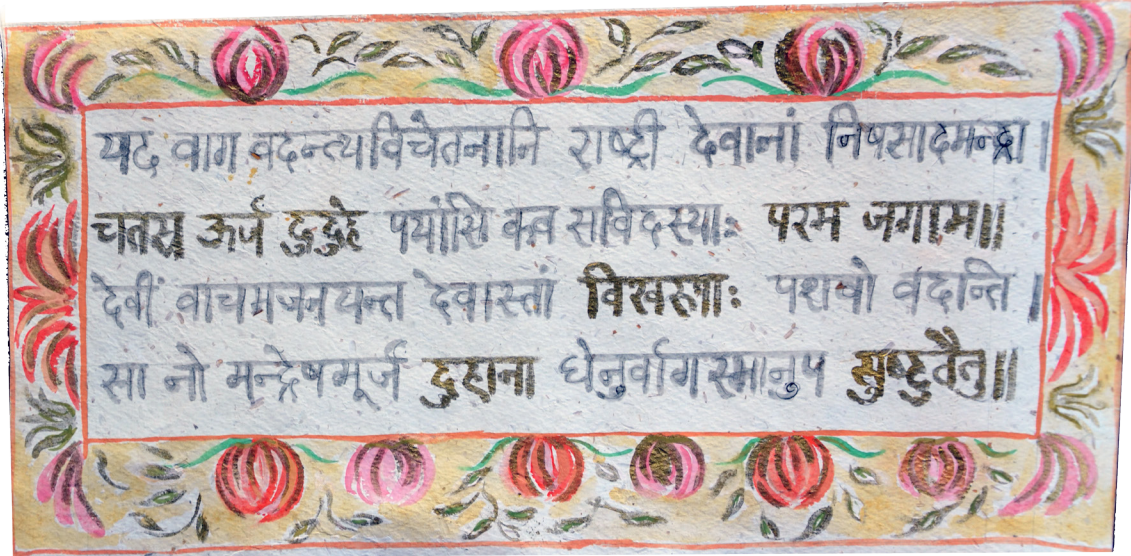 यद वाग वदन्त्यविचेतनानि राष्ट्री देवानां निषसादमन्द्रा।
चतस्र ऊर्ज दुदुहे पयांसि कव सविदस्याः परम जगाम॥
देवीं वाचमजनयन्त देवास्तां विखरूपाः पशवो वदन्ति।
सा नो मन्द्रेषमूर्ज दुहाना धेनुर्वागस्मानुप सुष्टुतैतु॥